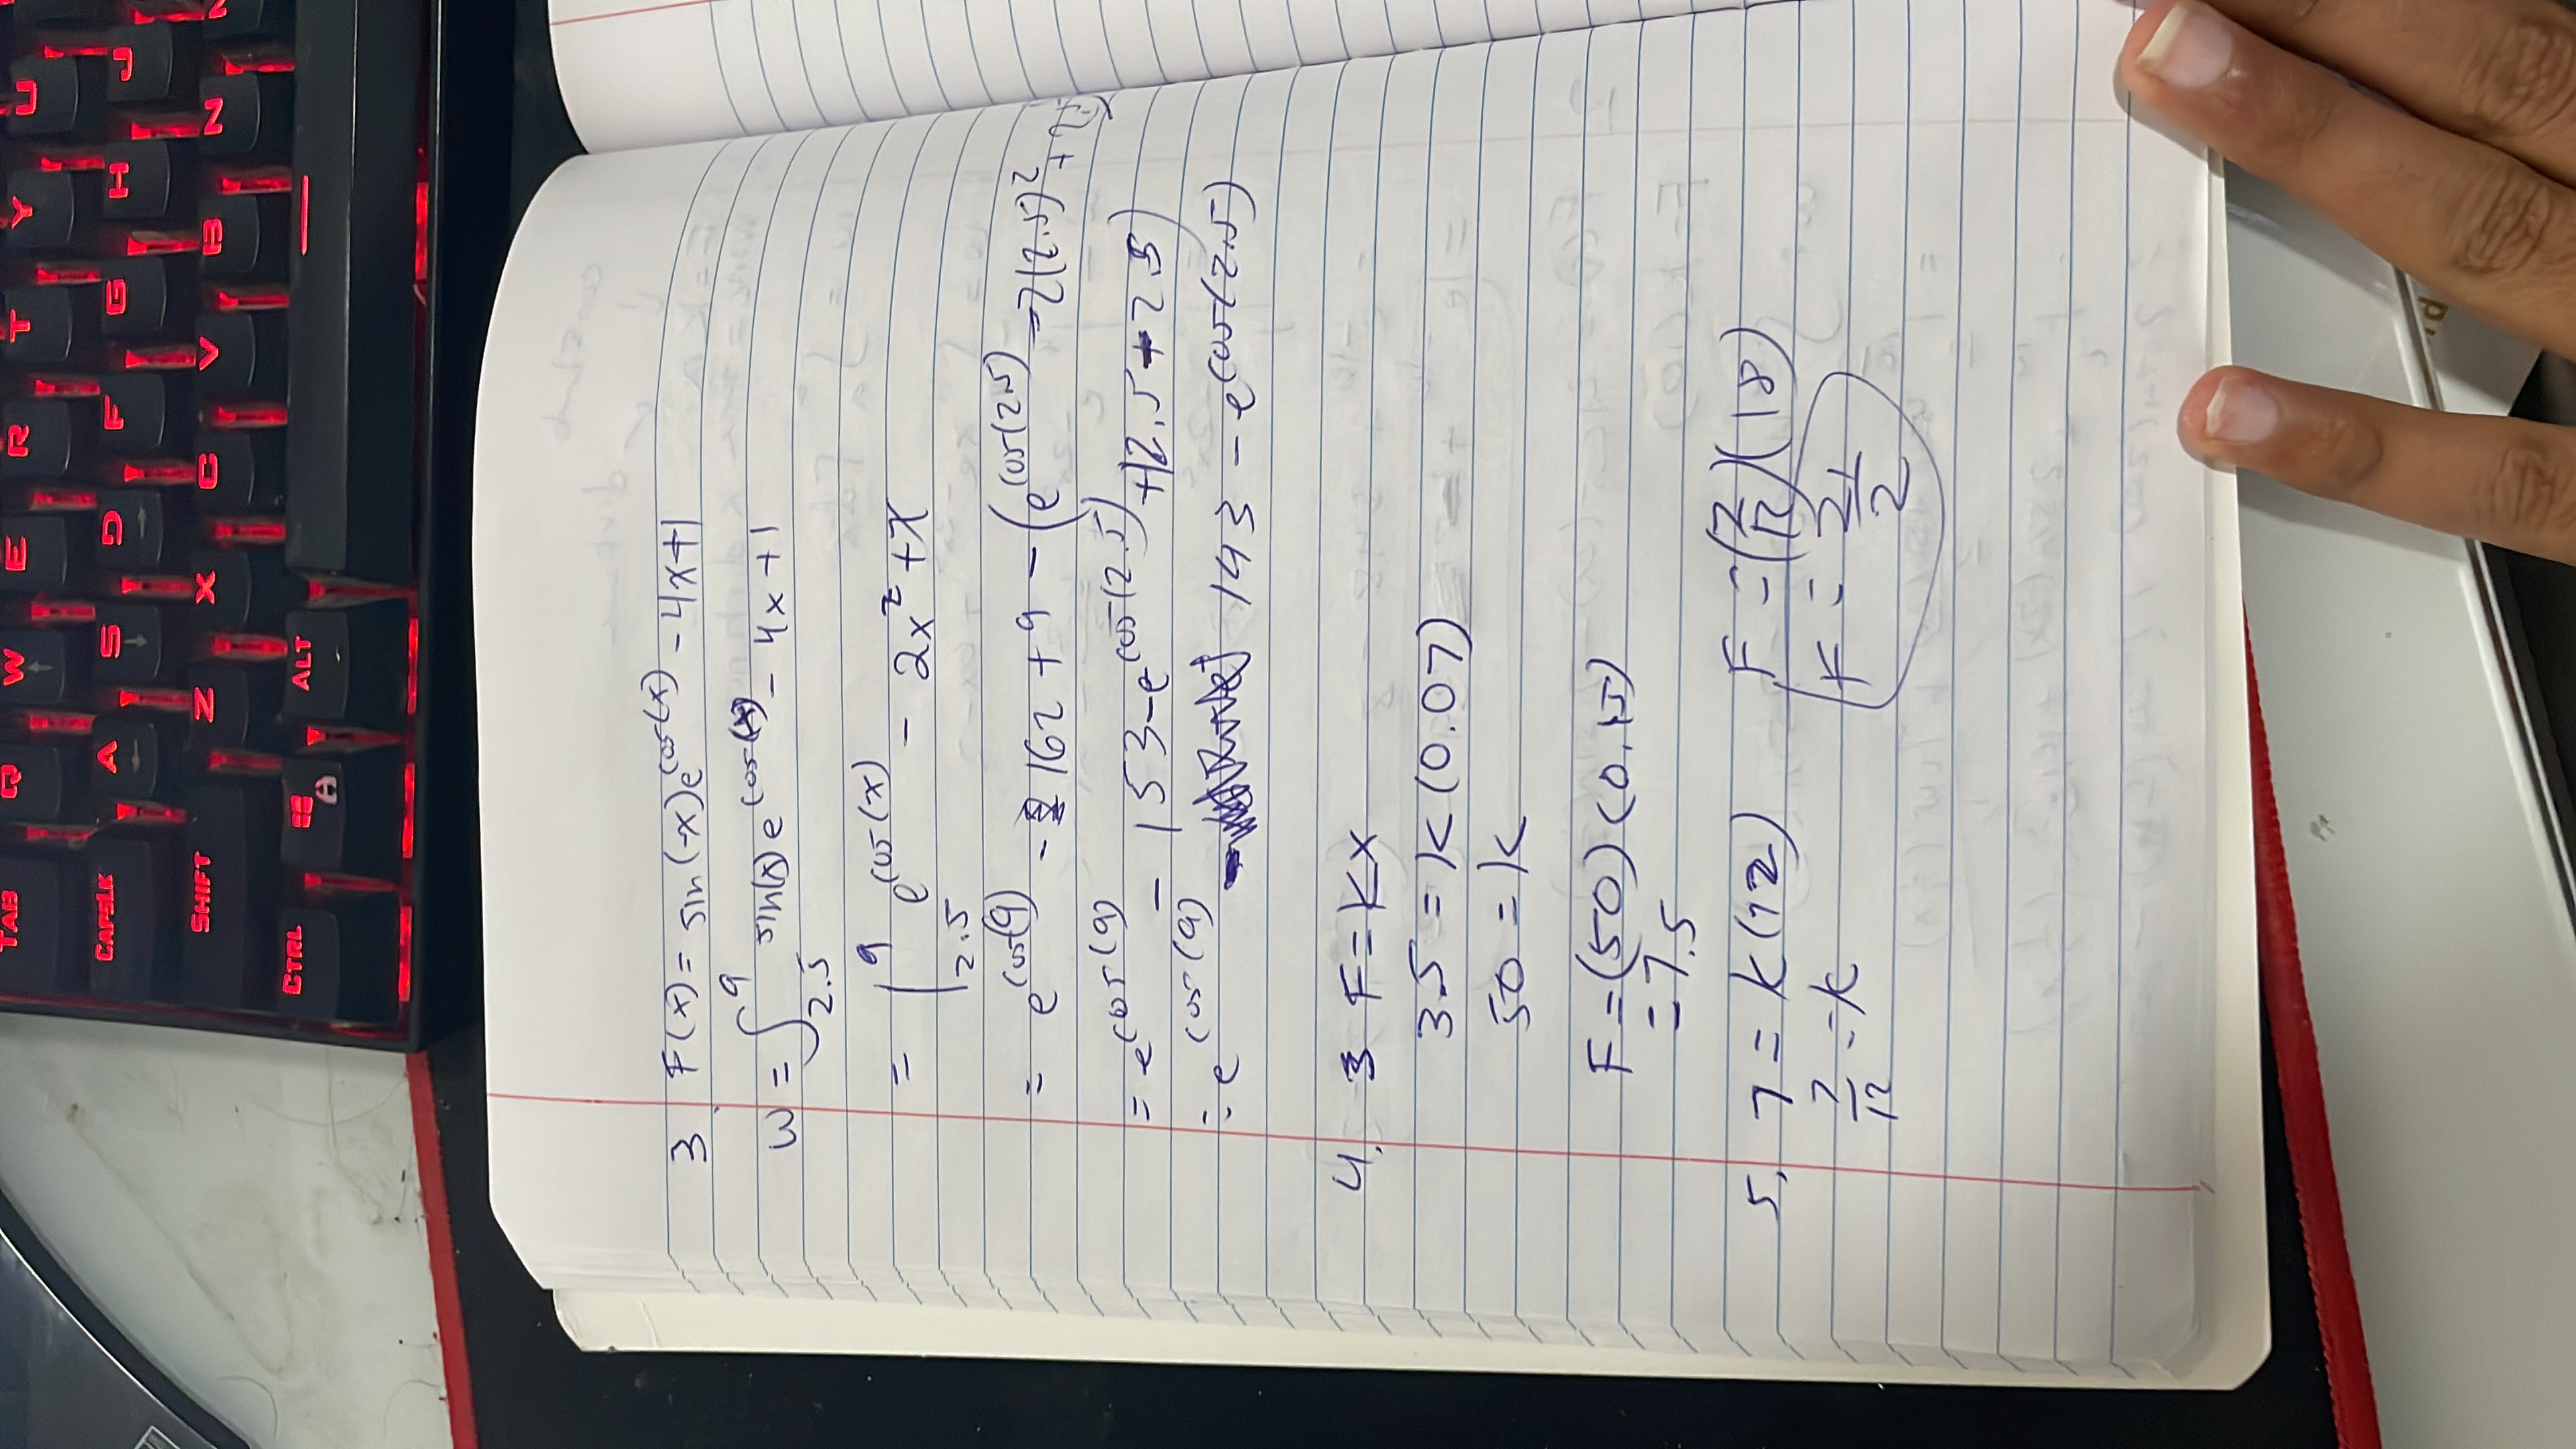 TAB Q W E R T Y U
CAPSLK A S D F G H J
SHIFT Z X C V B N
CTRL ALT
3. F(x) = sin(-x)e^cos(x) - 4x+1
W = ∫_2.5^9 sin(x) e^cos(x) - 4x + 1
= |_2.5^9 e^cos(x) - 2x² + x
= e^cos(9) - 162 + 9 - (e^cos(2.5) - 2(2.5)² + 2.5)
= e^cos(9) - 153 - e^cos(2.5) + 12.5 - 2.5)
= e^cos(9) - 143 - e^cos(2.5)
4. F = kx
3.5 = k(0.07)
50 = k
F = (50)(0.15)
= 7.5
5. 7 = k(12) F = (7/12)(18)
7/12 = k F = 21/2